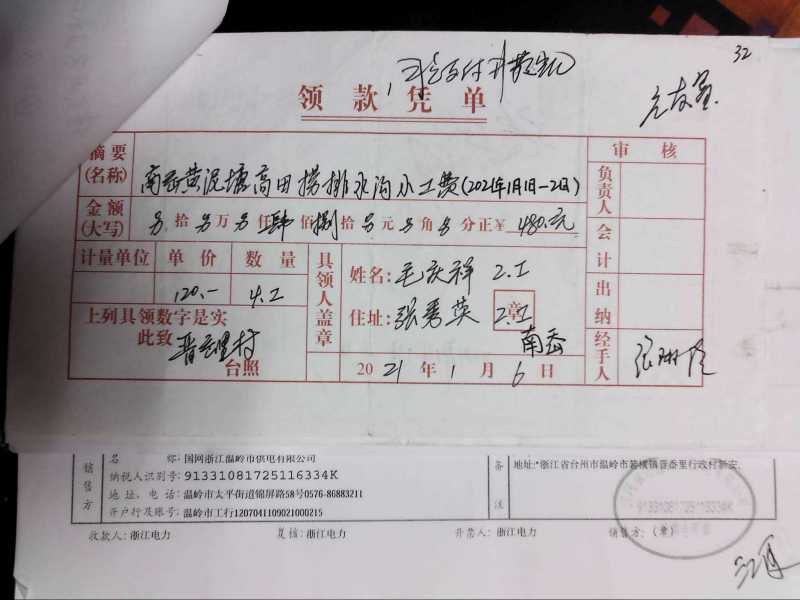 32
领款凭单
摘要(名称) 南岙黄泥塘高田捞排水沟小工费(2021年1月1日-2日)
审核
金额(大写) 另拾另万另仟肆佰捌拾另元另角另分正￥480.元
负责人
会计
出纳
经手人
计量单位 单价 数量
120.- 4.工
具领人盖章
姓名: 毛庆祥 2.工
住址: 张秀英 2.工
章
南岙
上列具领数字是实
此致 晋岙里村
台照
2021年1月6日
销售方
名称: 国网浙江温岭市供电有限公司
纳税人识别号: 91331081725116334K
地址、电话: 温岭市太平街道锦屏路58号0576-86883211
开户行及账号: 温岭市工行1207041109021000215
备注
地址:*浙江省台州市温岭市箬横镇晋岙里行政村新安
91331081725116334K
收款人: 浙江电力 复核: 浙江电力 开票人: 浙江电力 销售方: (章)